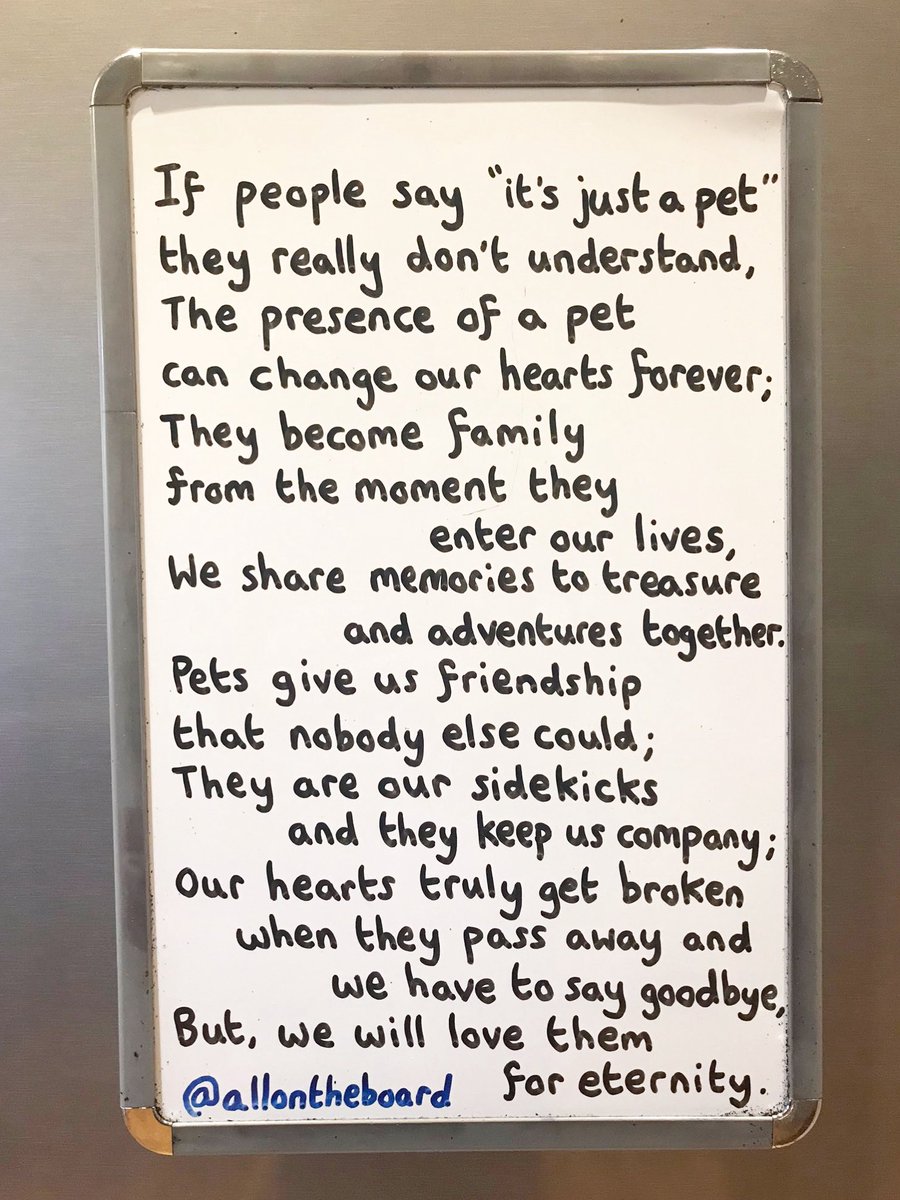 If people say "it's just a pet"
they really don't understand,
The presence of a pet
can change our hearts forever;
They become family
from the moment they
enter our lives,
We share memories to treasure
and adventures together.
Pets give us friendship
that nobody else could;
They are our sidekicks
and they keep us company;
Our hearts truly get broken
when they pass away and
we have to say goodbye,
But, we will love them
for eternity.
@allontheboard